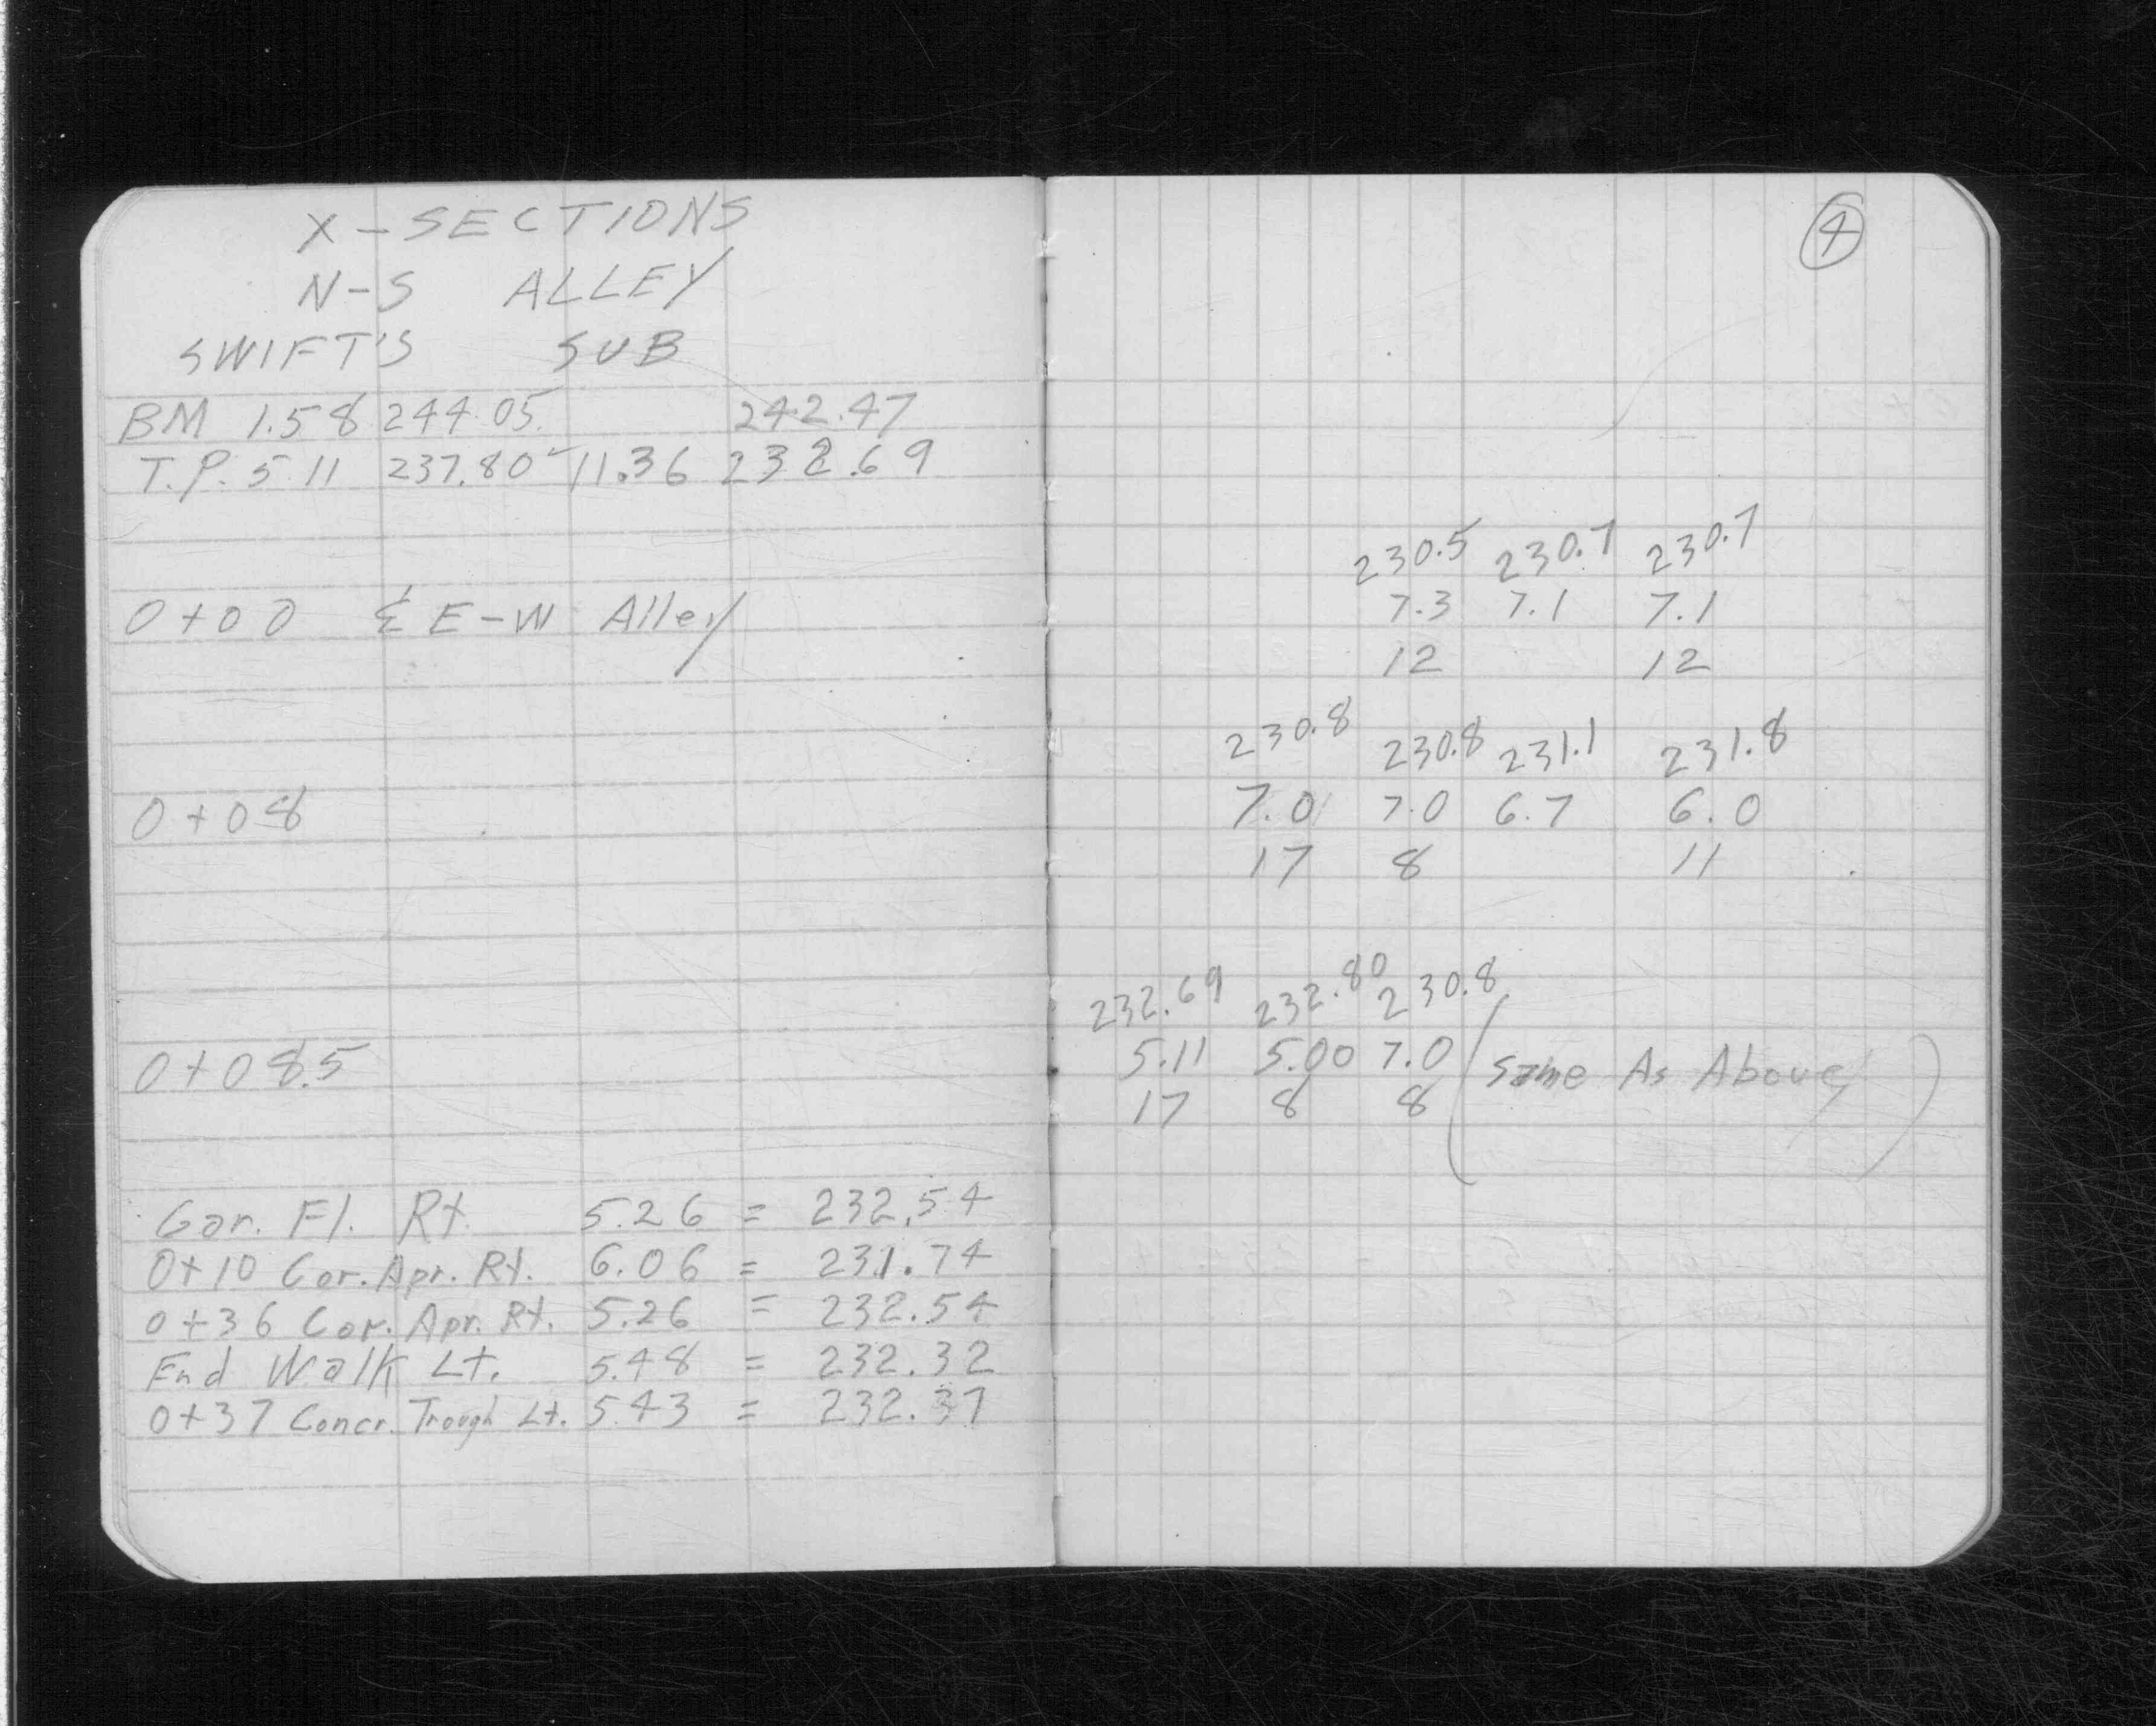 X-SECTIONS
N-S ALLEY
SWIFT'S SUB
BM 1.58 244.05 242.47
T.P. 5.11 237.80 11.36 232.69
0+00 ℄ E-W Alley
0+08
0+08.5
Gar. Fl. Rt. 5.26 = 232.54
0+10 Cor. Apr. Rt. 6.06 = 231.74
0+36 Cor. Apr. Rt. 5.26 = 232.54
End Walk Lt. 5.48 = 232.32
0+37 Concr. Trough Lt. 5.43 = 232.37
4
230.5 230.7 230.7
7.3 7.1 7.1
12 12
230.8 230.8 231.1 231.8
7.0 7.0 6.7 6.0
17 8 11
232.69 232.80 230.8
5.11 5.00 7.0 (Same As Above)
17 8 8